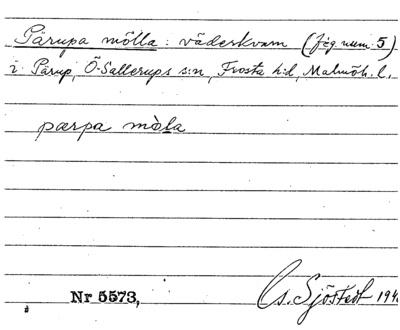 Pärupa mölla: väderkvarn (jfr num. 5)
i Pärup, Ö. Sallerups s:n, Frosta h:d, Malmöh. l.
pærpa mòla
Nr 5573,
G. Sjöstedt